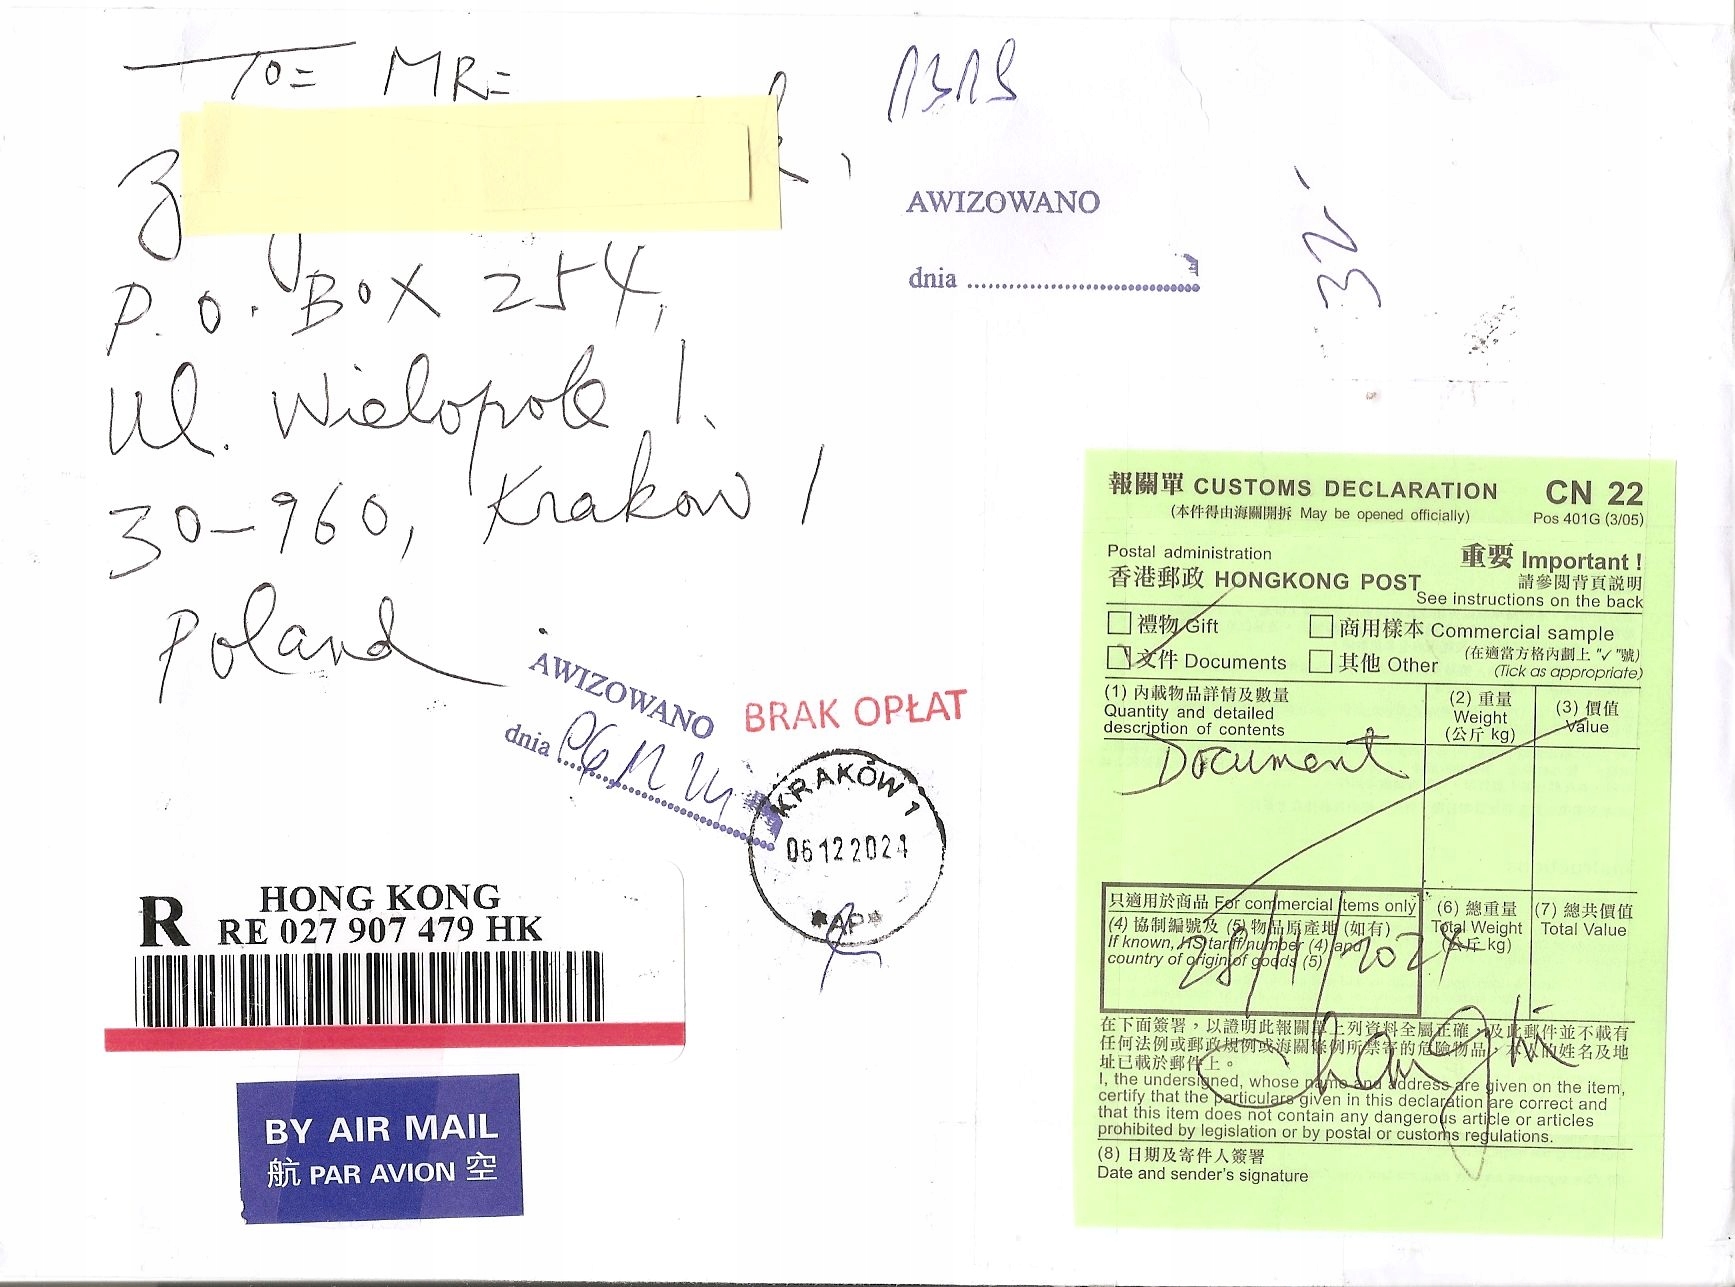 To= MR=
P.O. Box 254,
Ul. Wielopole 1.
30-960, Krakow 1
Poland
AWIZOWANO
dnia
32
AWIZOWANO
dnia 06 12 24
BRAK OPŁAT
KRAKÓW 1
06122024
*AP*
R HONG KONG
RE 027 907 479 HK
BY AIR MAIL
航 PAR AVION 空
報關單 CUSTOMS DECLARATION CN 22
(本件得由海關開拆 May be opened officially) Pos 401G (3/05)
Postal administration 重要 Important !
香港郵政 HONGKONG POST 請參閱背頁説明
See instructions on the back
禮物 Gift 商用樣本 Commercial sample
文件 Documents 其他 Other (在適當方格內劃上 "✓"號)
(Tick as appropriate)
(1) 內載物品詳情及數量 (2) 重量 (3) 價值
Quantity and detailed Weight Value
description of contents (公斤 kg)
Document
只適用於商品 For commercial items only (6) 總重量 (7) 總共價值
(4) 協制編號及 (5) 物品原產地 (如有) Total Weight Total Value
If known, HS tariff number (4) and (公斤 kg)
country of origin of goods (5)
28/11/2024
在下面簽署，以證明此報關單上列資料全屬正確，及此郵件並不載有
任何法例或郵政規例或海關條例所禁寄的危險物品，本人的姓名及地
址已載於郵件上。
I, the undersigned, whose name and address are given on the item,
certify that the particulars given in this declaration are correct and
that this item does not contain any dangerous article or articles
prohibited by legislation or by postal or customs regulations.
(8) 日期及寄件人簽署
Date and sender's signature